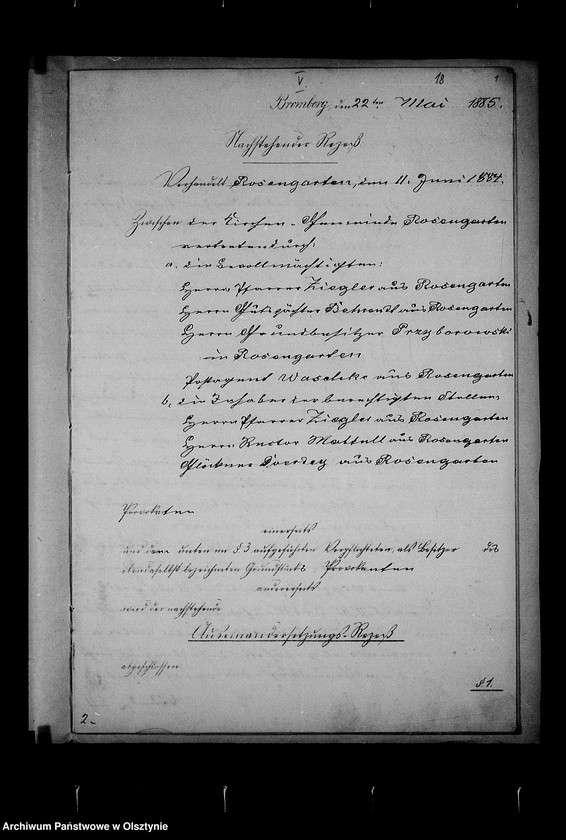 V
18
1
Bromberg, den 22ten Mai 1885.
Nachstehender Rezeß
Verhandelt Rosengarten, den 11. Juni 1884.
Zwischen der Kirchen-Gemeinde Rosengarten
vertreten durch:
a. die Bevollmächtigten:
Herrn Pfarrer Ziegler aus Rosengarten
Herrn Gutspächter Behrendt aus Rosengarten
Herrn Grundbesitzer Przyborowski
in Rosengarten
Postagent Waschke aus Rosengarten
b. die Inhaber der berechtigten Stellen,
Herrn Pfarrer Ziegler aus Rosengarten
Herrn Rector Mattull aus Rosengarten
Glöckner aus Rosengarten
Provokaten
einerseits
und dem unten im § 3 aufgeführten Verpflichteten, als Besitzer des
ebendaselbst bezeichneten Grundstücks Provokanten
andererseits
wird der nachstehende
Auseinandersetzungs-Rezeß
abgeschlossen
§ 1.
2.
Archiwum Państwowe w Olsztynie